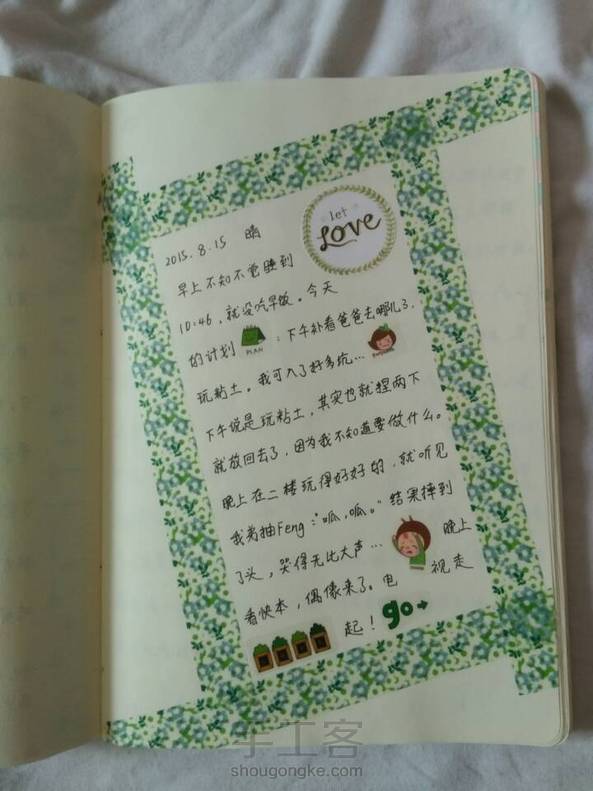 let
Love
2015.8.15 晴
早上不知不觉睡到
10:46，就没吃早饭。今天
的计划 PLAN ：下午补看爸爸去哪儿3，
玩粘土。我可入了好多坑…
下午说是玩粘土，其实也就捏两下
就放回去了，因为我不知道要做什么。
晚上在二楼玩得好好的，就听见
Feng："呱，呱。"结果摔到
了头，哭得无比大声… 晚上
看快本，偶像来了。电视走
起！ go
手工客
shougongke.com